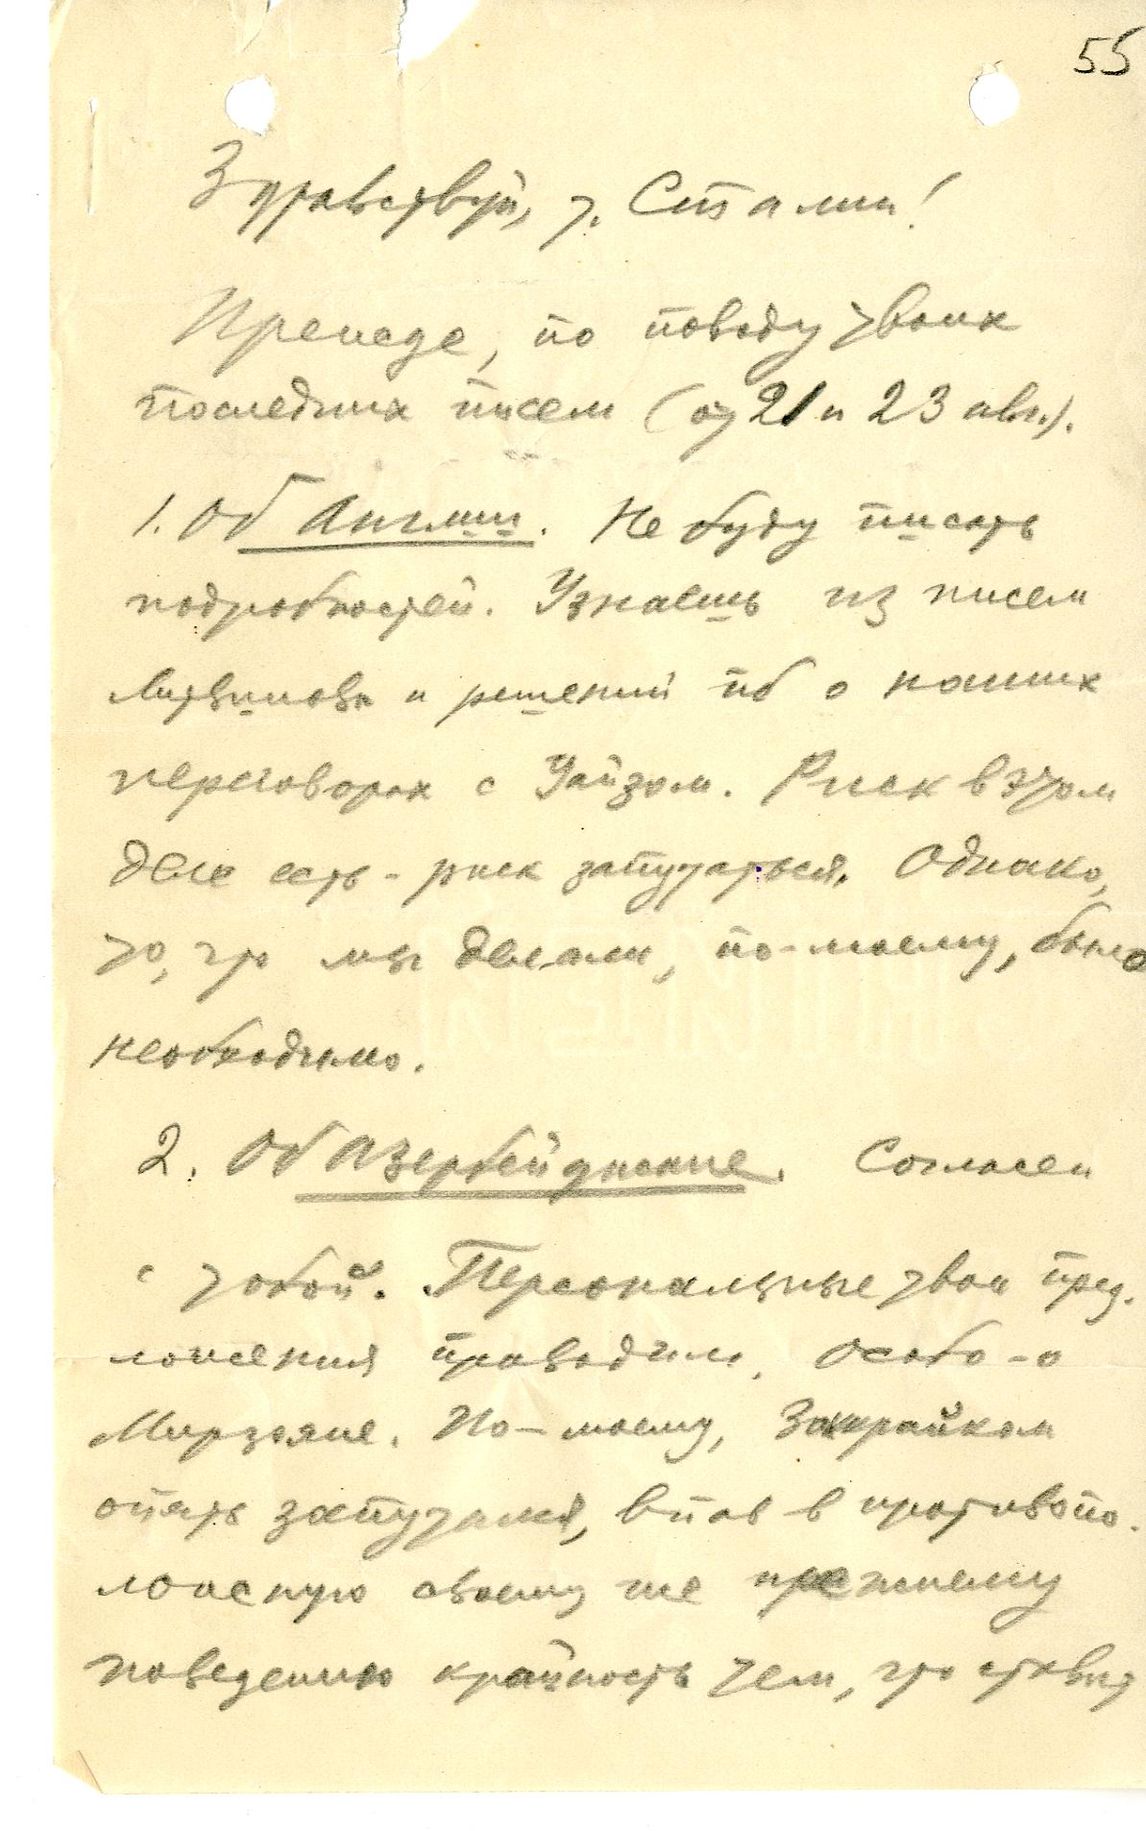 55
Здравствуй, т. Сталин!
Прежде, по поводу твоих
последних писем (от 21 и 23 авг.).
1. Об Англии. Не буду писать
подробностей. Узнаешь из писем
Литвинова и решений пб о наших
переговорах с Уайзом. Риск в этом
деле есть - риск запутаться. Однако,
то, что мы делали, по-моему, было
необходимо.
2. Об Азербейджане. Согласен
с тобой. Персональные твои пред-
ложения проводим, особо - о
Мирзояне. По-моему, Заккрайком
опять запутался, впав в противопо-
ложную своему же прежнему
поведению крайность тем, что ставит